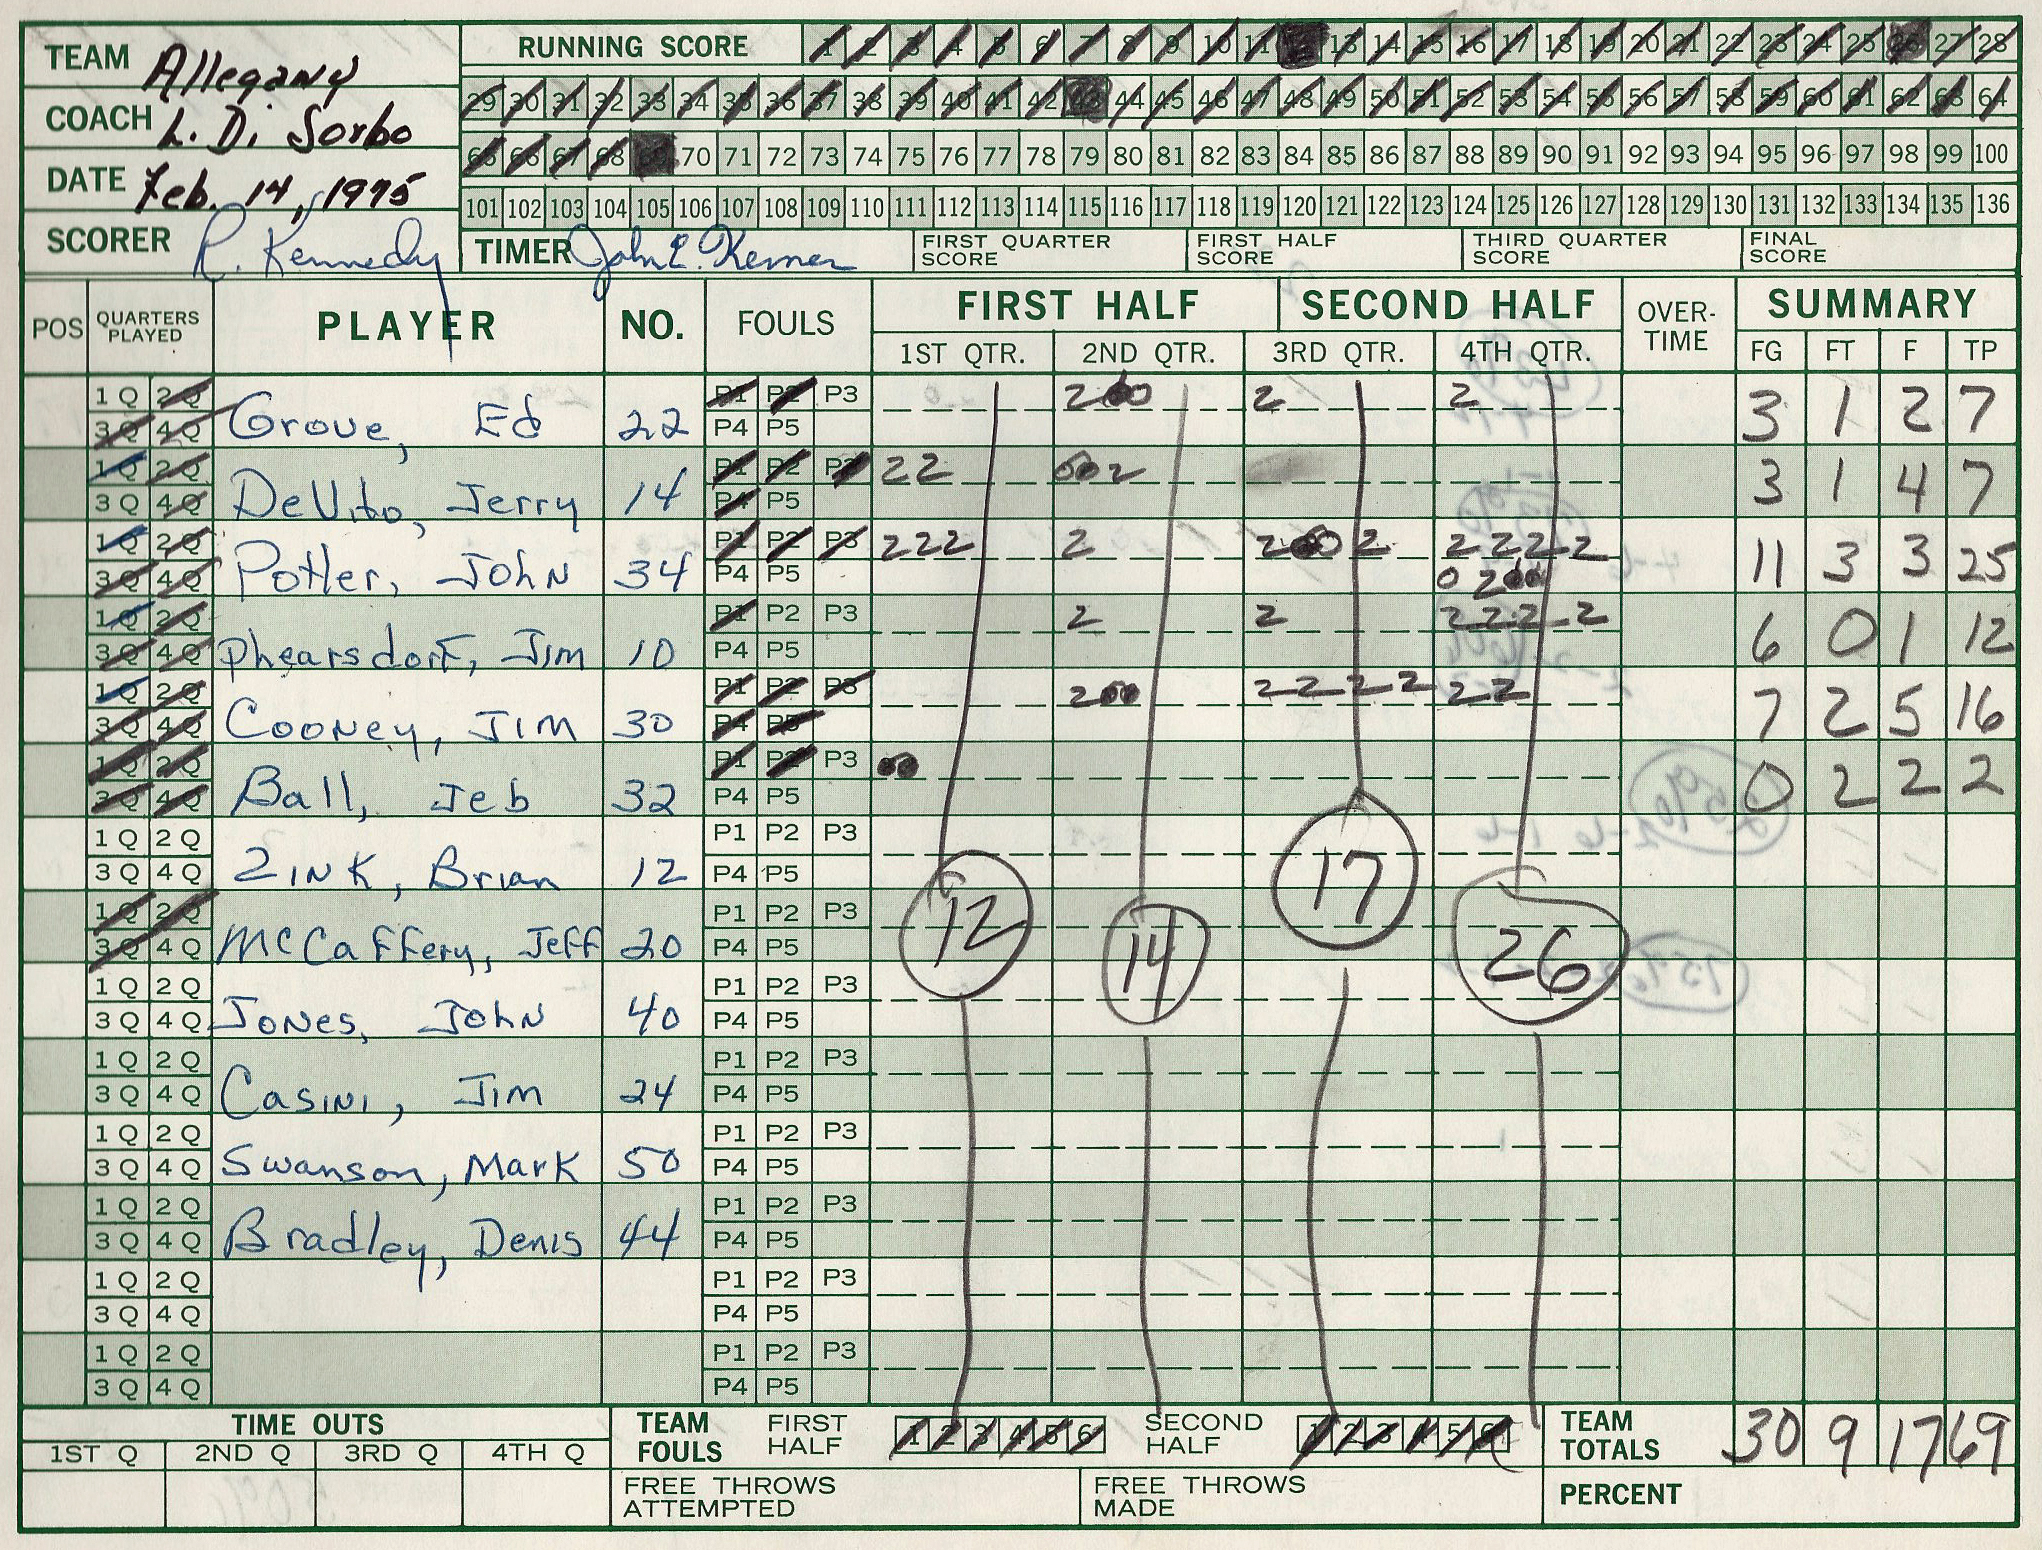 TEAM Allegany
COACH L. Di Sorbo
DATE Feb. 14, 1975
SCORER R. Kennedy
RUNNING SCORE 1 2 3 4 5 6 7 8 9 10 11 13 14 15 16 17 18 19 20 21 22 23 24 25 26 27 28
29 30 31 32 33 34 35 36 37 38 39 40 41 42 43 44 45 46 47 48 49 50 51 52 53 54 55 56 57 58 59 60 61 62 63 64
65 66 67 68 69 70 71 72 73 74 75 76 77 78 79 80 81 82 83 84 85 86 87 88 89 90 91 92 93 94 95 96 97 98 99 100
101 102 103 104 105 106 107 108 109 110 111 112 113 114 115 116 117 118 119 120 121 122 123 124 125 126 127 128 129 130 131 132 133 134 135 136
TIMER John E. Kerner FIRST QUARTER SCORE FIRST HALF SCORE THIRD QUARTER SCORE FINAL SCORE
POS QUARTERS PLAYED PLAYER NO. FOULS FIRST HALF SECOND HALF OVER-TIME SUMMARY
1ST QTR. 2ND QTR. 3RD QTR. 4TH QTR. FG FT F TP
1Q 2Q P1 P2 P3 2 2 2
3Q 4Q Grove, Ed 22 P4 P5 3 1 2 7
1Q 2Q P1 P2 P3 2 2 2
3Q 4Q DeVito, Jerry 14 P4 P5 3 1 4 7
1Q 2Q P1 P2 P3 2 2 2 2 2 2 2 2 2 2
3Q 4Q Potter, John 34 P4 P5 0 2 11 3 3 25
1Q 2Q P1 P2 P3 2 2 2 2 2 2
3Q 4Q Phearsdorf, Jim 10 P4 P5 6 0 1 12
1Q 2Q P1 P2 P3 2 2 2 2 2 2 2
3Q 4Q Cooney, Jim 30 P4 P5 7 2 5 16
1Q 2Q P1 P2 P3
3Q 4Q Ball, Jeb 32 P4 P5 0 2 2 2
1Q 2Q P1 P2 P3
3Q 4Q Zink, Brian 12 P4 P5
1Q 2Q P1 P2 P3
3Q 4Q McCaffery, Jeff 20 P4 P5
12 14 17 26
1Q 2Q P1 P2 P3
3Q 4Q Jones, John 40 P4 P5
1Q 2Q P1 P2 P3
3Q 4Q Casini, Jim 24 P4 P5
1Q 2Q P1 P2 P3
3Q 4Q Swanson, Mark 50 P4 P5
1Q 2Q P1 P2 P3
3Q 4Q Bradley, Denis 44 P4 P5
1Q 2Q P1 P2 P3
3Q 4Q P4 P5
1Q 2Q P1 P2 P3
3Q 4Q P4 P5
TIME OUTS
1ST Q 2ND Q 3RD Q 4TH Q
TEAM FOULS FIRST HALF 1 2 3 4 5 6 SECOND HALF 1 2 3 4 5 6
TEAM TOTALS 30 9 17 69
FREE THROWS ATTEMPTED FREE THROWS MADE PERCENT